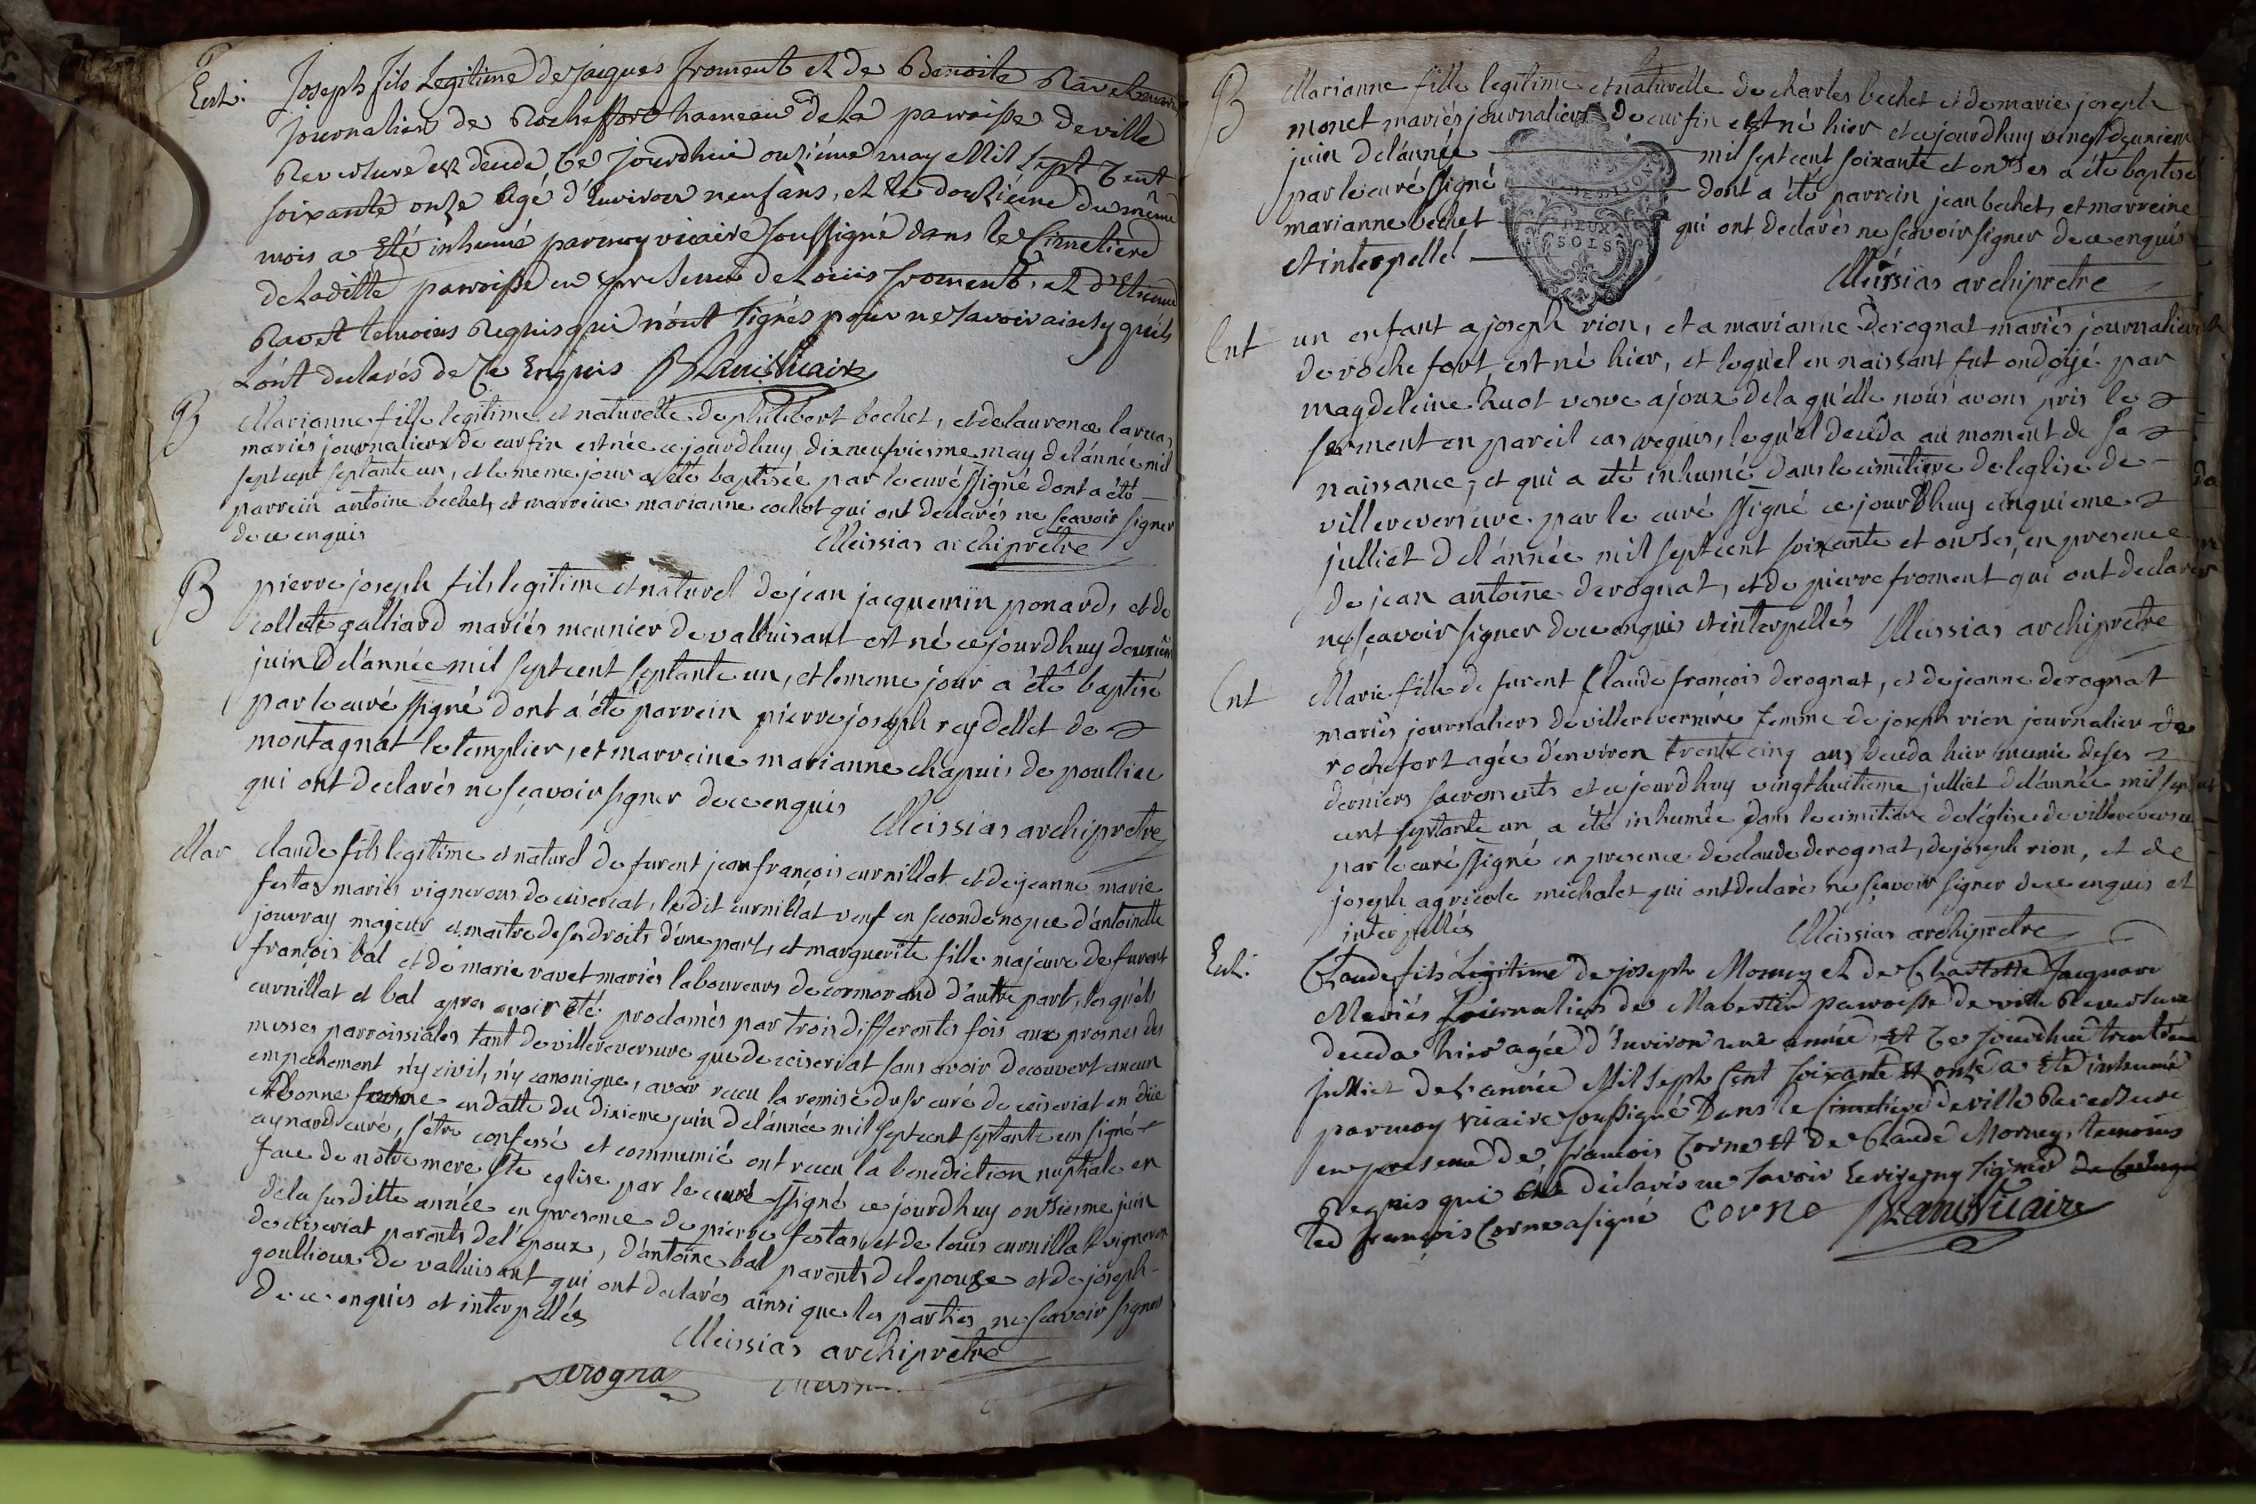 Ent. Joseph fils Legitime de jacques froment et de Benoite Ravet
Journalier de Rocheffort hameau de la paroisse de ville
Reversure est decedé Ce jourdhui onzième may Mil sept Cent
soixante onze Agé d'Environ neuf ans, et le douzieme du même
mois a Eté inhumé par moy vicaire soussigné dans le Cimetiere
de Laditte paroisse en presence de Louis froment, et d'Etienne
Ravet temoins Requis qui n'ont signés pour ne savoir ainsy qu'ils
L'ont declarés de Ce Enquis Vicaire
B Marianne fille legitime et naturelle de philibert bechet, et de laurence
mariés journaliers de curfin est née ce jourd'huy dix neufviesme may de l'année mil
sept cent septante un, et le meme jour a été baptisée par le curé ssigné dont a été
parrein antoine bechet, et marreine marianne cochet qui ont declarés ne sçavoir signer
de ce enquis Meissias archipretre
B pierre joseph fils legitime et naturel de jean jacquemin ponard, et de
collete galliard mariés meunier de valluisant est né ce jourd'huy
juin de l'année mil sept cent septante un, et le meme jour a été baptisé
par le curé ssigné dont a été parrein pierre joseph reydellet de
montagnat le templier, et marreine marianne chapuis de poulliac
qui ont declarés ne sçavoir signer de ce enquis
Meissias archipretre
Mar Claude fils legitime et naturel de furent jean françois curnillat et de jeanne marie
festas mariés vignerons de ceiseriat, le dit curnillat veuf en seconde nopce d'antoinette
jouvray majeur et maitre de ses droits d'une part, et marguerite fille majeure de furent
françois bal et de marie ravet mariés laboureurs de cormorand d'autre part, lesquels
curnillat et bal apres avoir été proclamés par trois differentes fois aux prosnes des
messes parroissiales tant de villereversure que de ceiseriat sans avoir decouvert aucun
empechement n'y civil, n'y canonique, avoir receu la remise du sr curé de ceiseriat en düe
et bonne forme en datte du dixieme juin de l'année mil sept cent septante un signé
aynard curé, s'étre confessé et communié ont receu la benediction nuptiale en
face de notre mere ste eglise par le curé ssigné ce jourd'huy onsiesme juin
de la susditte année en presence de pierre festas, et de louis curnillat vigneron
de ceiseriat parents de l'époux, d'antoine bal parents de l'epouse et de joseph
goullioux de valluisant qui ont declarés ainsi que les parties ne sçavoir signer
de ce enquis et interpellés
Meissias archipretre
B Marianne fille legitime et naturelle de charles bechet et de marie joseph
monet mariés journaliers de curfin est né hier et ce jourdhuy vingt deuxieme
juin de l'année mil sept cent soixante et onses a été baptisé
par le curé ssigné dont a été parrein jean bechet, et marreine
marianne bechet qui ont declarés ne sçavoir signer de ce enquis
et interpellé
DEUX
SOLS
Meissias archipretre
Ent un enfant a joseph rion, et a marianne derognat mariés journaliers
de rochefort est né hier, et lequel en naissant fut ondoyé par
magdeleine huot vesve ajoux de la quelle nous avons pris le
serment en pareil cas requis, lequel deceda au moment de sa
naissance, et qui a été inhumé dans le cimitiere de l'eglise de
villereversure par le curé ssigné ce jourdhuy cinquieme
julliet de l'année mil sept cent soixante et onses, en presence
de jean antoine derognat, et de pierre froment qui ont declarés
ne sçavoir signer de ce enquis et interpellés Meissias archipretre
Ent Marie fille de furent Claude françois derognat, et de jeanne derognat
mariés journaliers de villereversure femme de joseph rion journalier de
rochefort agée d'environ trente cinq ans deceda hier munie de ses
derniers sacrements et ce jourdhuy vingt huitieme julliet de l'année mil sept
cent septante un a été inhumée dans le cimitiere de l'église de villereversure
par le curé ssigné en presence de claude derognat, de joseph rion, et de
joseph agricole michalet qui ont declarés ne sçavoir signer de ce enquis et
interpellés
Meissias archipretre
Ent. Claude fils Légitime de joseph Morney et de Charlotte Jacquard
Mariés Journaliers de paroisse de ville Reversure
deceda hier agée d'Environ une année, et Ce jourdhui
julliet de l'année Mil Sept Cent soixante et onze a Eté inhumé
par moy Vicaire soussigné Dans le Cimetiere de ville Reversure
en presence de francois Corne et de Claude Morney, temoins
Requis qui déclarés ne savoir Ecrire ny signer de Ce Enquis
led françois Corne a signé Corne Vicaire